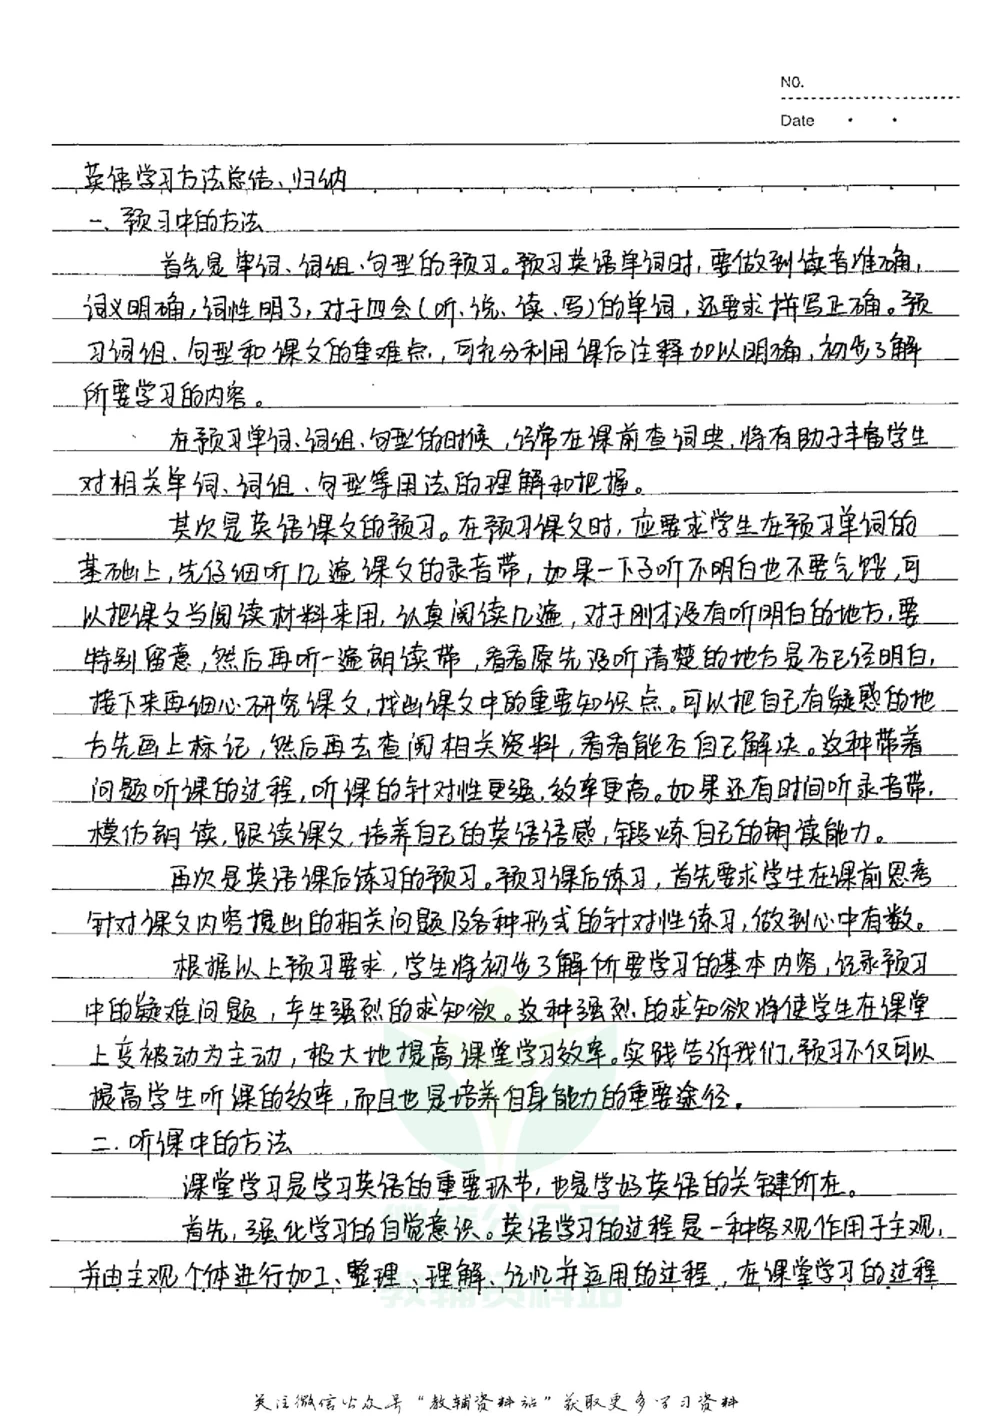 NO.
Date
英语学习方法总结、归纳
一、预习中的方法
首先是单词、词组、句型的预习。预习英语单词时，要做到读音准确，
词义明确，词性明了，对于四会（听、说、读、写）的单词，还要求拼写正确。预
习词组、句型和课文的重难点，可充分利用课后注释加以明确，初步了解
所要学习的内容。
在预习单词、词组、句型的时候，经常在课前查词典，将有助于丰富学生
对相关单词、词组、句型等用法的理解和把握。
其次是英语课文的预习。在预习课文时，应要求学生在预习单词的
基础上，先仔细听几遍课文的录音带，如果一下子听不明白也不要气馁，可
以把课文当阅读材料来用，认真阅读几遍，对于刚才没有听明白的地方，要
特别留意，然后再听一遍朗读带，看看原先没听清楚的地方是否已经明白，
接下来再细心研究课文，找出课文中的重要知识点。可以把自己有疑惑的地
方先画上标记，然后再去查阅相关资料，看看能否自己解决。这种带着
问题听课的过程，听课的针对性更强，效率更高。如果还有时间听录音带，
模仿朗读，跟读课文，培养自己的英语语感，锻炼自己的朗读能力。
再次是英语课后练习的预习。预习课后练习，首先要求学生在课前思考
针对课文内容提出的相关问题及各种形式的针对性练习，做到心中有数。
根据以上预习要求，学生将初步了解所要学习的基本内容，记录预习
中的疑难问题，产生强烈的求知欲。这种强烈的求知欲将使学生在课堂
上变被动为主动，极大地提高课堂学习效率。实践告诉我们，预习不仅可以
提高学生听课的效率，而且也是培养自身能力的重要途径。
二．听课中的方法
课堂学习是学习英语的重要环节，也是学好英语的关键所在。
首先，强化学习的自觉意识。英语学习的过程是一种客观作用于主观，
并由主观个体进行加工、整理、理解、记忆并运用的过程，在课堂学习的过程
教辅资料站
关注微信公众号“教辅资料站”获取更多学习资料